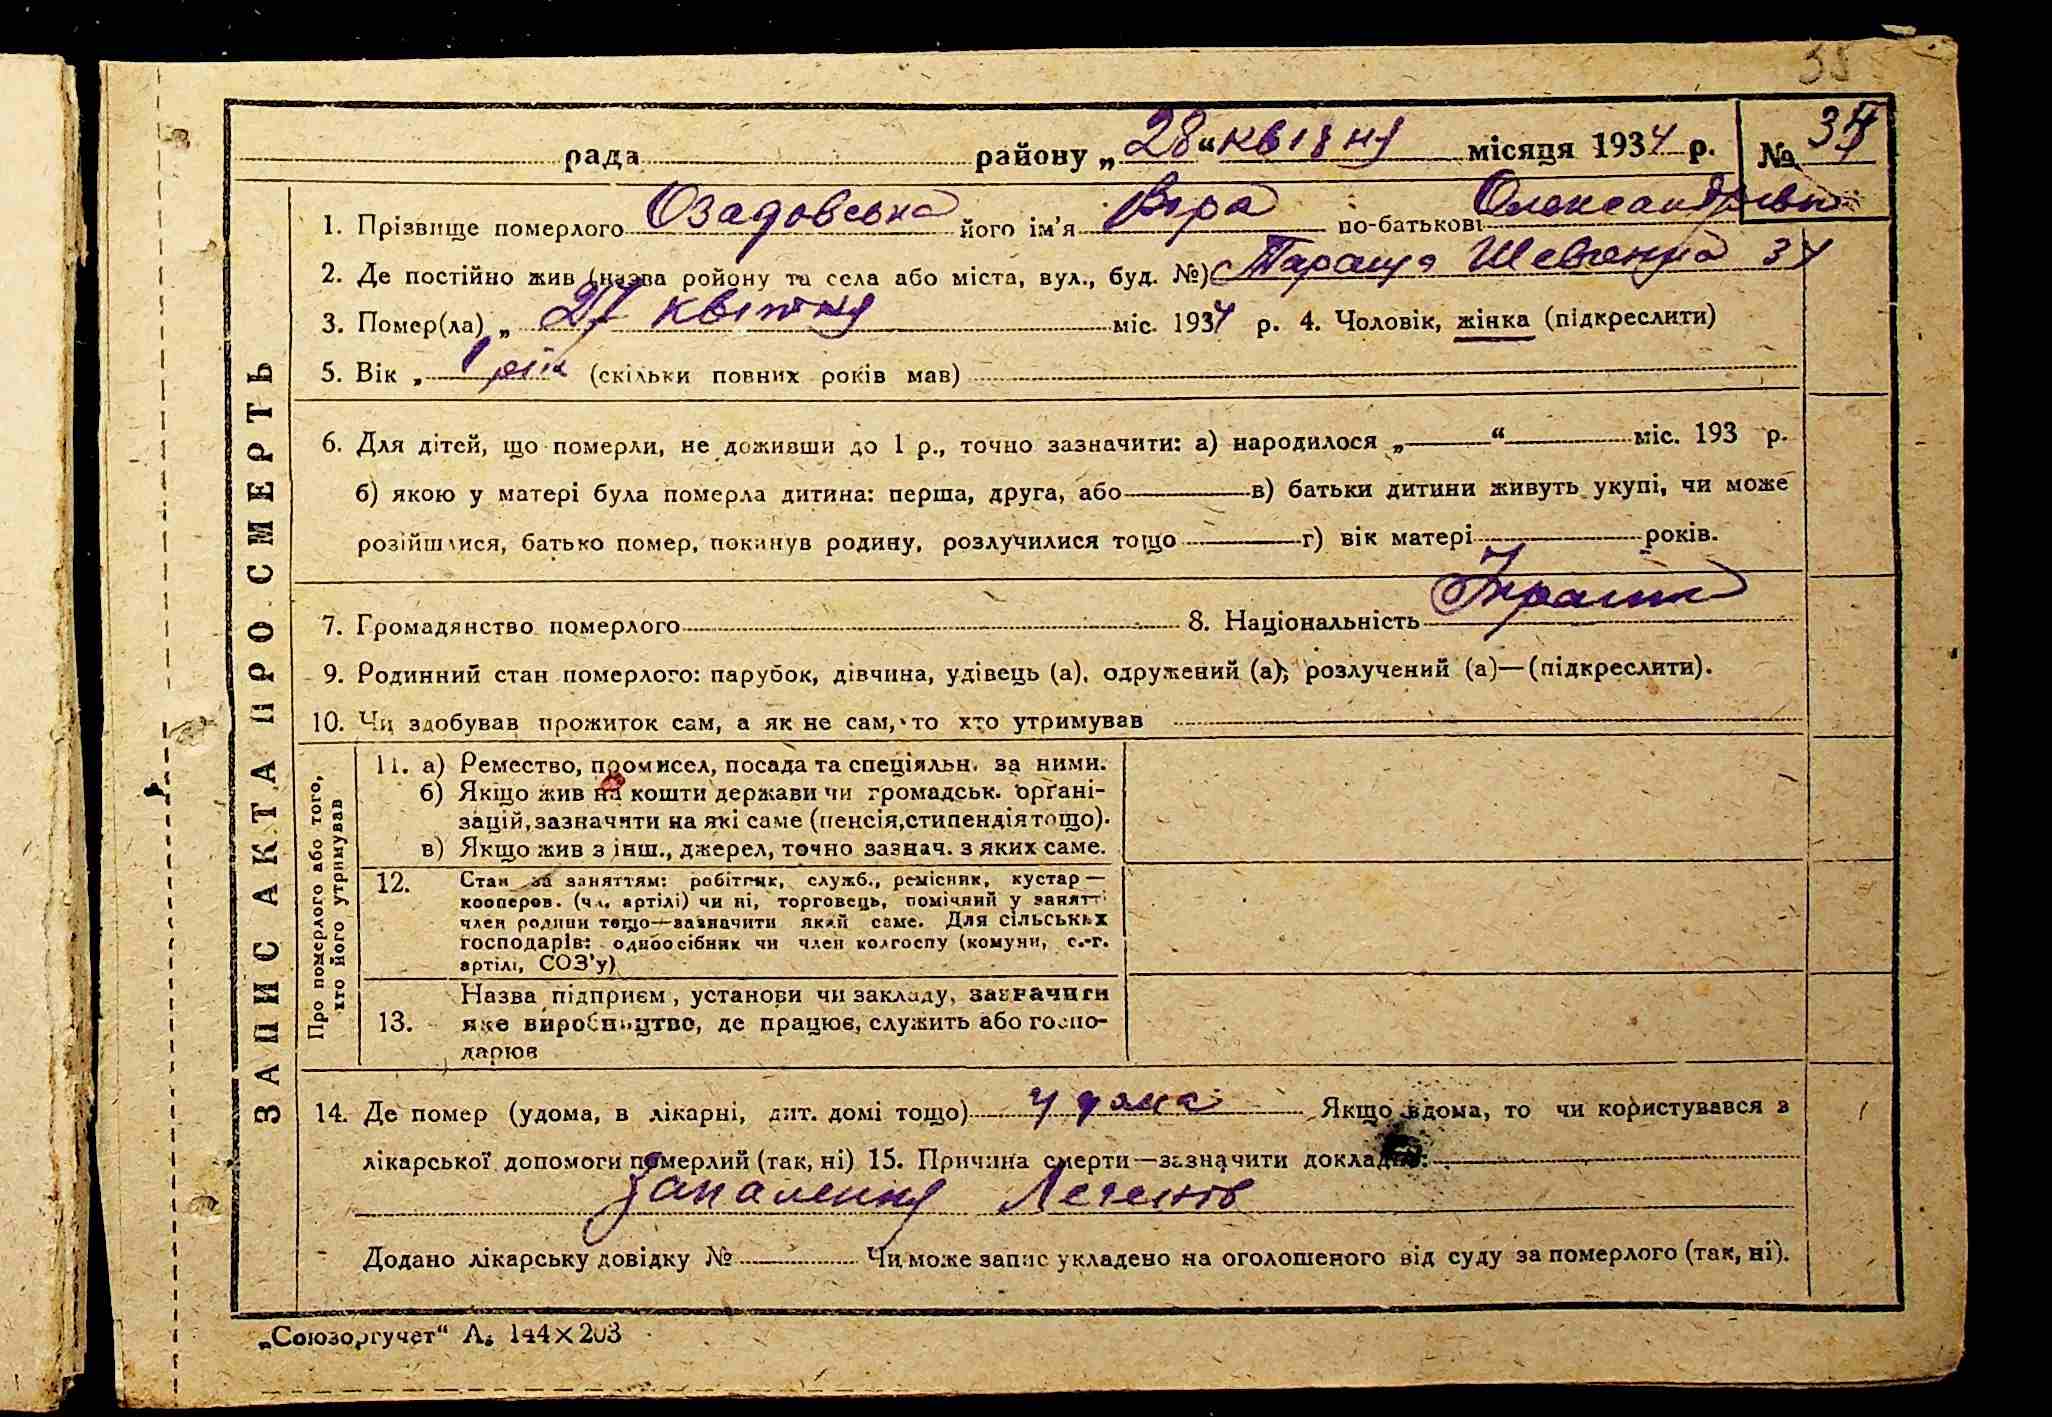 35
рада района „28“ квітня місяця 1934 р. №
1. Прізвище померлого Озадовська його ім'я Віра по-батькові Олександрівн
2. Де постійно жив (назва ройону та села або міста, вул., буд. №) Тараща Шевченка 34
3. Помер(ла) „ 27 квітня міс. 1934 р. 4. Чоловік, жінка (підкреслити)
5. Вік „ 1 рік (скільки повних років мав)
6. Для дітей, що померли, не доживши до 1 р., точно зазначити: а) народилося „ “ міс. 193 р.
б) якою у матері була померла дитина: перша, друга, або в) батьки дитини живуть укупі, чи може
розійшлися, батько помер, покинув родину, розлучилися тощо г) вік матері років.
7. Громадянство померлого 8. Національність Україн
9. Родинний стан померлого: парубок, дівчина, удівець (а), одружений (а), розлучений (а)—(підкреслити).
10. Чи здобував прожиток сам, а як не сам, то хто утримував
ЗАПИС АКТА ПРО СМЕРТЬ
Про померлого або того, хто його утримував
11. а) Ремество, промисел, посада та спеціяльн. за ними.
б) Якщо жив на кошти держави чи громадськ. органі-
зацій, зазначити на які саме (пенсія, стипендія тощо).
в) Якщо жив з інш., джерел, точно зазнач. з яких саме.
12. Стан за заняттям: робітник, служб., ремісник, кустар —
кооперов. (чл. артілі) чи ні, торговець, помічний у занятті
член родини тощо—зазначити який саме. Для сільських
господарів: одноосібник чи член колгоспу (комуни, с.-г.
артілі, СОЗ'у)
13. Назва підприєм, установи чи закладу, зазначити
яке виробництво, де працює, служить або госпо-
дарює
14. Де помер (удома, в лікарні, дит. домі тощо) удома Якщо вдома, то чи користувався з
лікарської допомоги померлий (так, ні) 15. Причина смерти—зазначити докладно:
Запалення Легенів
Додано лікарську довідку № Чи може запис укладено на оголошеного від суду за померлого (так, ні).
„Союзоргучет“ А. 144×203